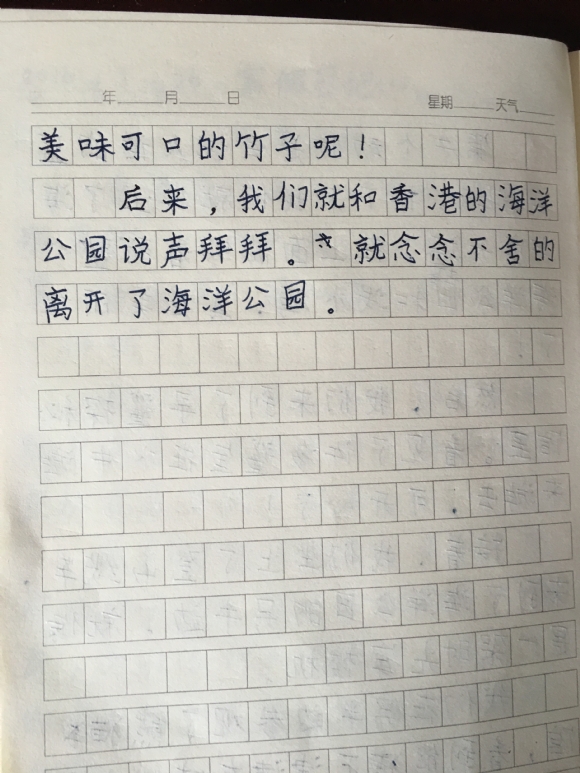 年 月 日 星期 天气
美味可口的竹子呢！
后来，我们就和香港的海洋
公园说声拜拜。 就念念不舍的
离开了海洋公园。